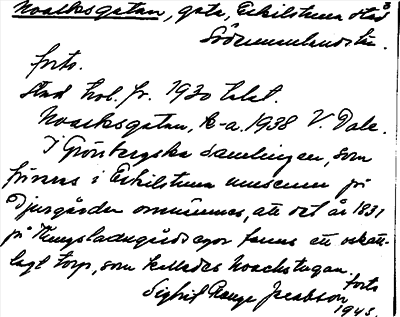 Noachsgatan, gata, Eskilstuna stad
Södermanlands län.
forts.
Stad kol. fr. 1930 talet.
Noachsgatan, K-a. 1938 V. Dale.
I Grönbergska samlingen, som
finnes i Eskilstuna museum på
Djurgården omnämnes, att det år 1831
på Kungsladugårds egor fanns ett oskatt-
lagt torp, som kallades Noachstugan.
forts
Sigfrid Range Jacobson
1945.